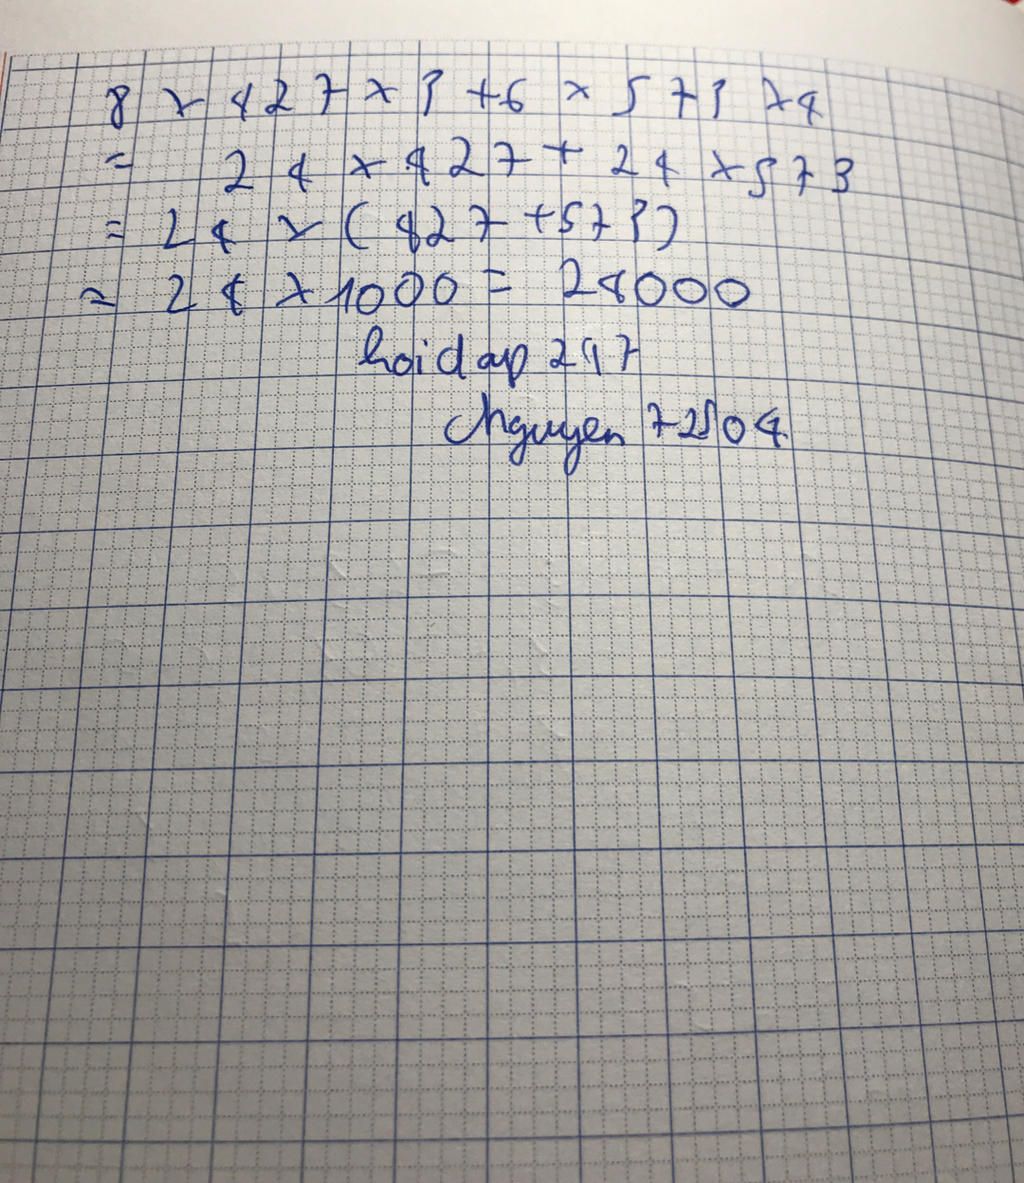 8 x 427 x 3 + 6 x 573 x 4
= 24 x 427 + 24 x 573
= 24 x (427 + 573)
= 24 x 1000 = 24000
hoidap 247
Nguyen 72504